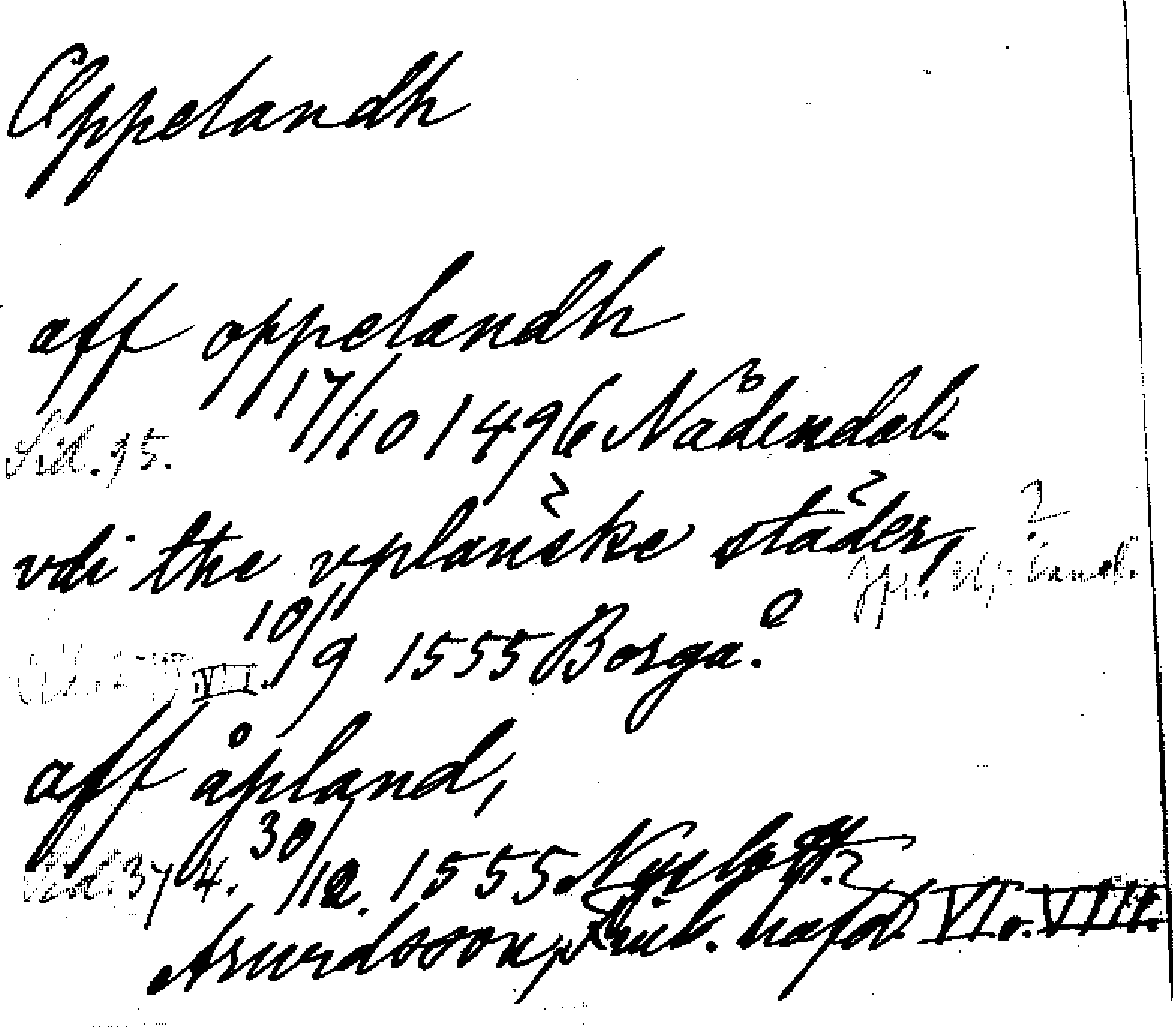 Oppelandh
aff oppelandh
17/10 1496 Nådendal.
Sid. 95.
vdi the vplanske städer,
Jfr. Upland.
10/9 1555 Borga.
VII.
aff åpland,
Sid. 374. 30/12. 1555 Nyslott.
Arwidsson, Handl. VI o. VIII.